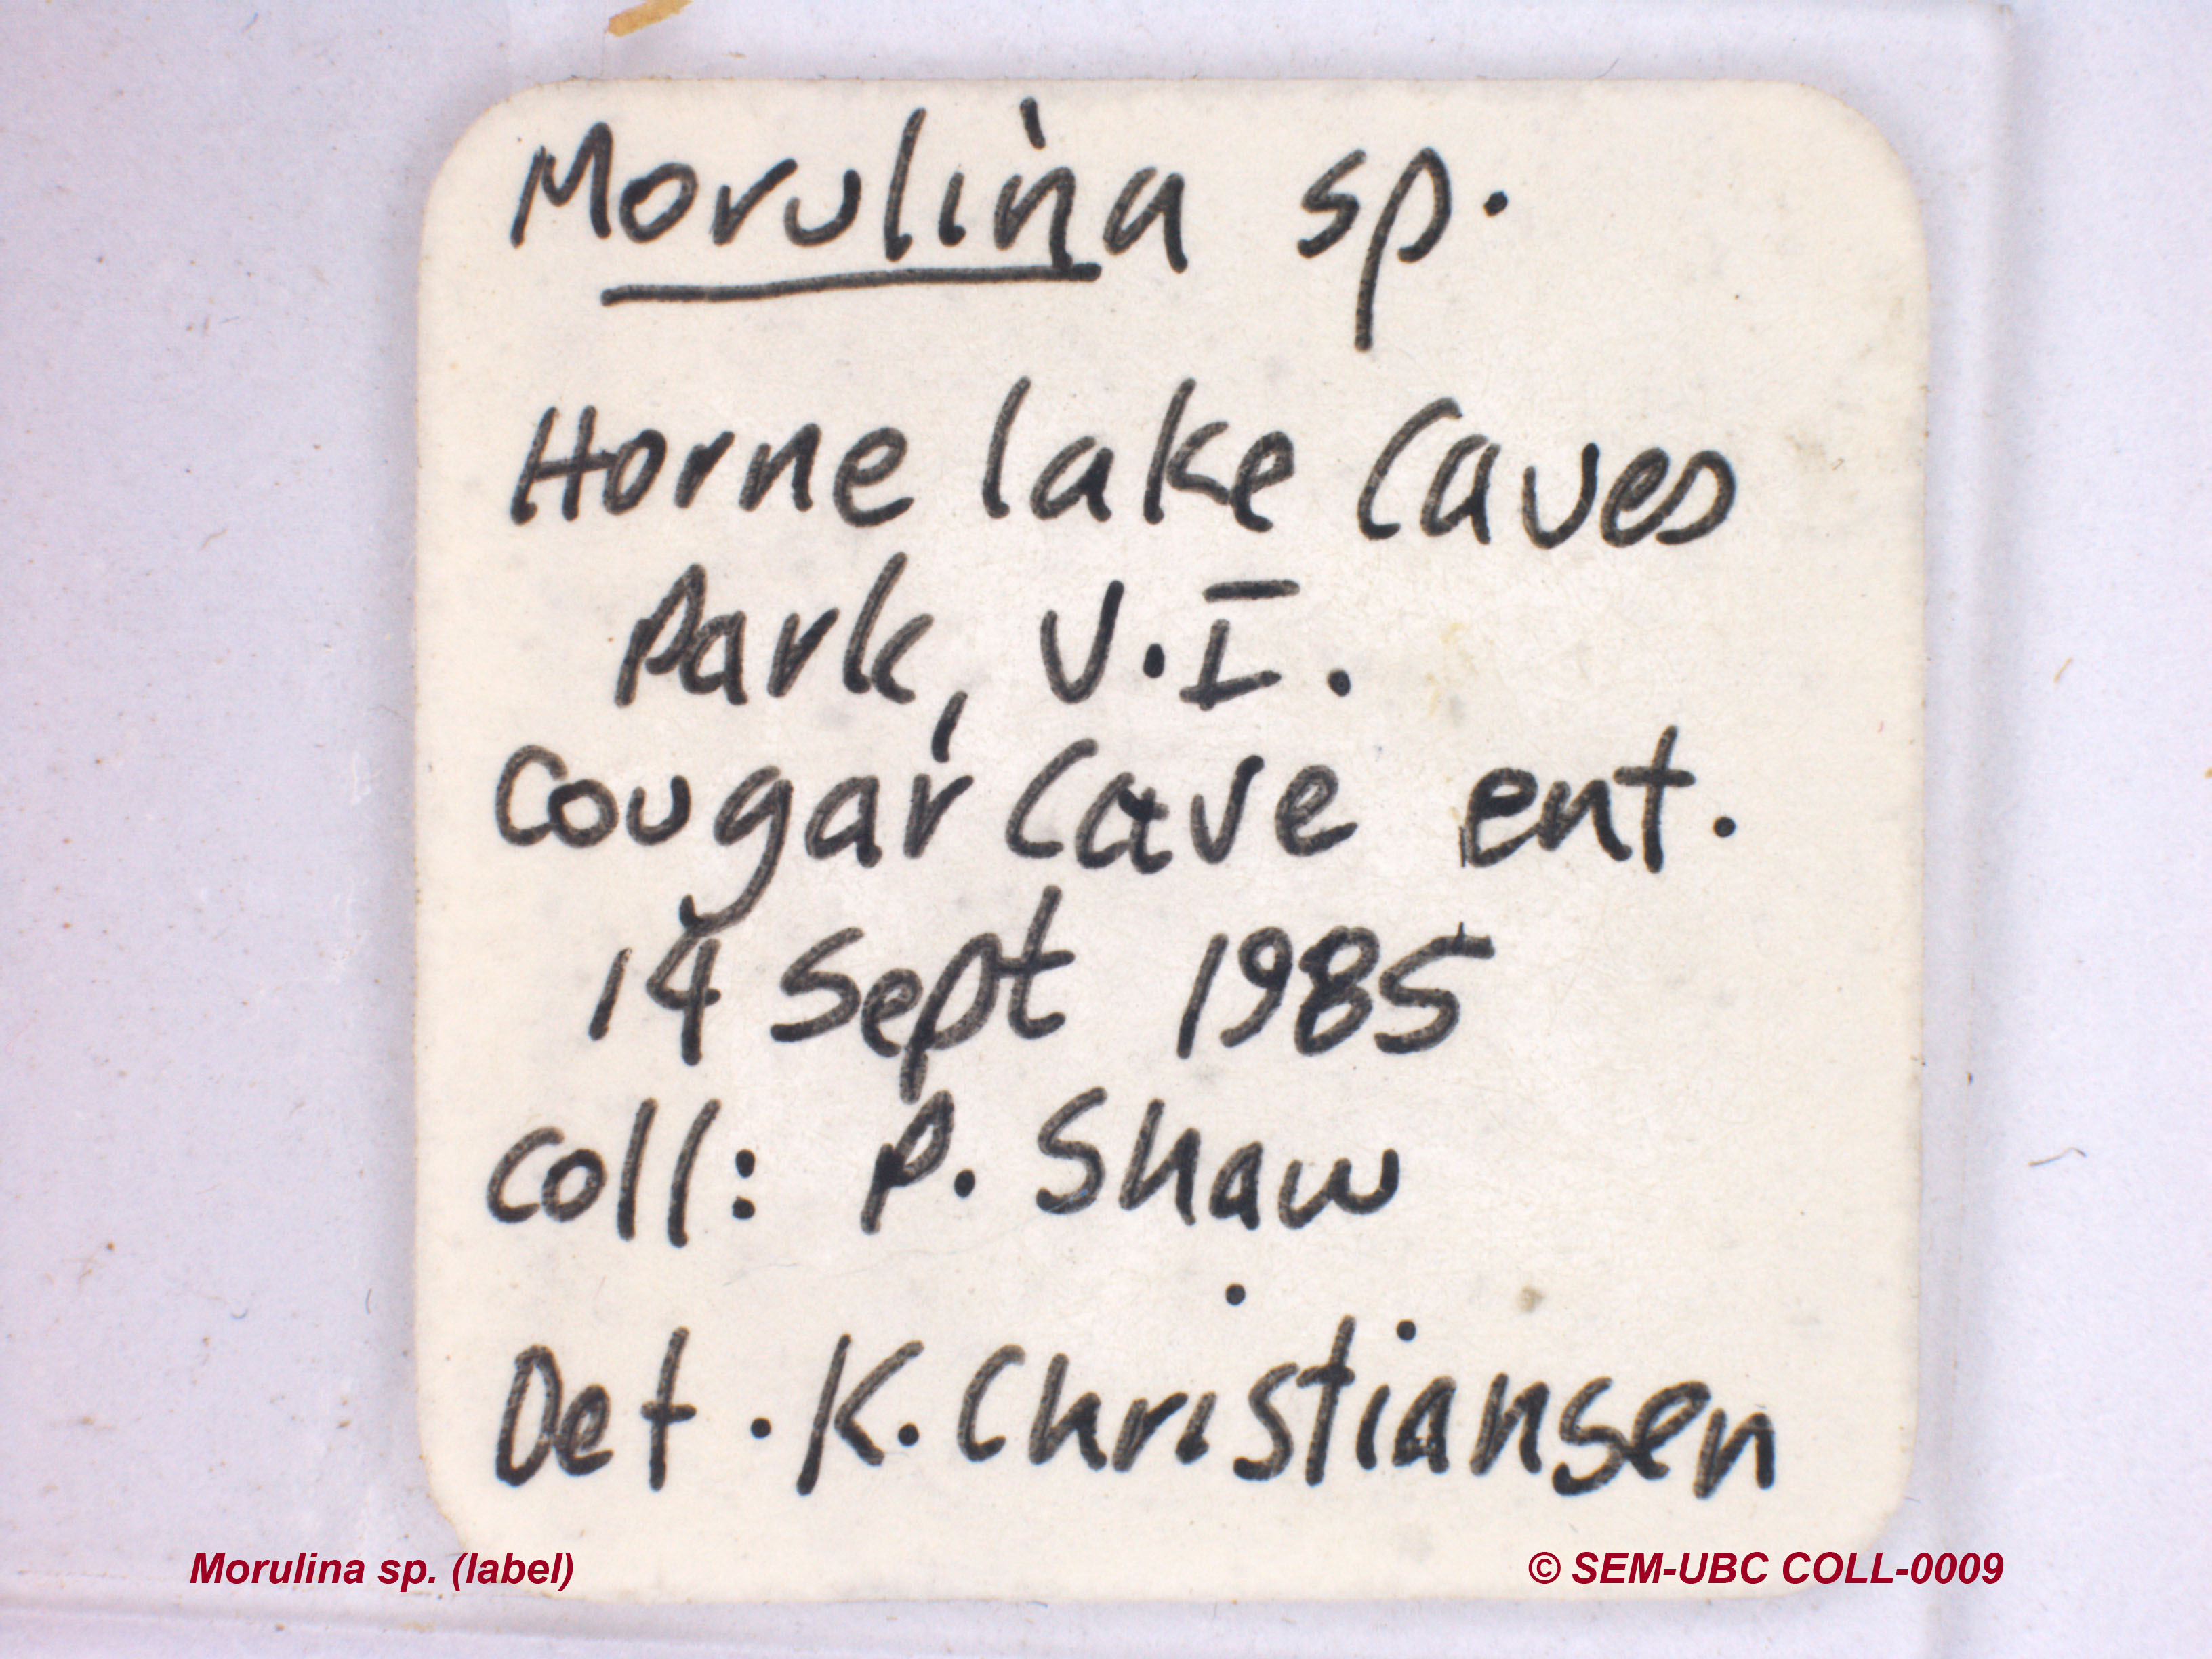 Morulina sp.
Horne lake Caves
Park, V.I.
Cougar Cave ent.
14 Sept 1985
Coll: P. Shaw
Det. K. Christiansen
Morulina sp. (label)
© SEM-UBC COLL-0009